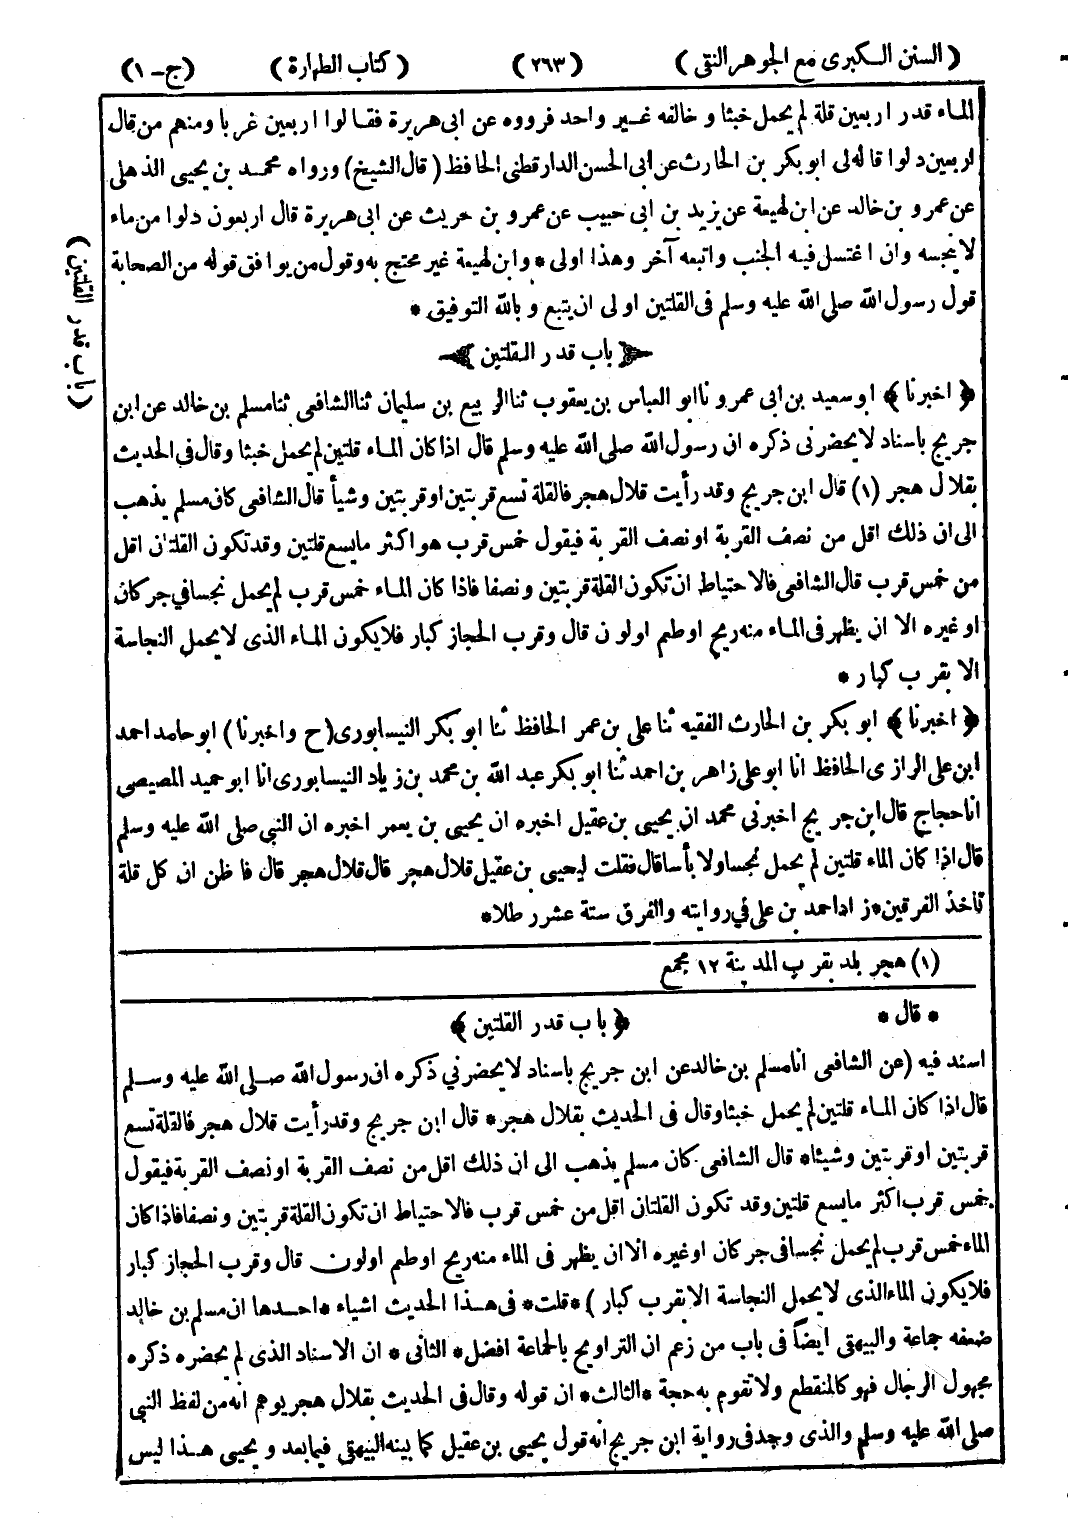 ( السنن الكبرى مع الجوهر النقى ) ( ٢٦٣ ) ( كتاب الطهارة ) ( ج - ١ )
الماء قدر اربعين قلة لم يحمل خبثا و خالفه غير واحد فرووه عن ابى هريرة فقالوا اربعين غربا ومنهم من قال
اربعين دلوا قاله لى ابو بكر بن الحارث عن ابى الحسن الدارقطنى الحافظ ( قال الشيخ ) ورواه محمد بن يحيى الذهلى
عن عمرو بن خالد عن ابن لهيعة عن يزيد بن ابى حبيب عن عمرو بن حريث عن ابى هريرة قال اربعون دلوا من ماء
لا ينجسه وان اغتسل فيه الجنب واتبعه آخر وهذا اولى * وابن لهيعة غير محتج به وقول من يوافق قوله من الصحابة
قول رسول الله صلى الله عليه وسلم فى القلتين اولى ان يتبع وبالله التوفيق *
( باب قدر القلتين )
﴿ باب قدر القلتين ﴾
﴿ اخبرنا ﴾ ابو سعيد بن ابى عمرو نا ابو العباس بن يعقوب ثنا الربيع بن سليمان ثنا الشافعى ثنا مسلم بن خالد عن ابن
جريج باسناد لا يحضرنى ذكره ان رسول الله صلى الله عليه وسلم قال اذا كان الماء قلتين لم يحمل خبثا وقال فى الحديث
بقلال هجر (١) قال ابن جريج وقد رأيت قلال هجر فالقلة تسع قربتين او قربتين وشيأ قال الشافعى كان مسلم يذهب
الى ان ذلك اقل من نصف القربة او نصف القربة فيقول خمس قرب هو اكثر ما يسع قلتين وقد تكون القلتان اقل
من خمس قرب قال الشافعى فالاحتياط ان تكون القلة قربتين ونصفا فاذا كان الماء خمس قرب لم يحمل نجسا في جر كان
او غيره الا ان يظهر فى الماء منه ريح او طعم او لون قال وقرب الحجاز كبار فلا يكون الماء الذى لا يحمل النجاسة
الا بقرب كبار *
﴿ اخبرنا ﴾ ابو بكر بن الحارث الفقيه ثنا على بن عمر الحافظ ثنا ابو بكر النيسابورى ( ح واخبرنا ) ابو حامد احمد
ابن على الرازى الحافظ انا ابو على زاهر بن احمد ثنا ابو بكر عبد الله بن محمد بن زياد النيسابورى انا ابو حميد المصيصى
انا حجاج قال ابن جريج اخبرنى محمد ان يحيى بن عقيل اخبره ان يحيى بن يعمر اخبره ان النبي صلى الله عليه وسلم
قال اذا كان الماء قلتين لم يحمل نجسا ولا بأسا قال فقلت ليحيى بن عقيل قلال هجر قال قلال هجر قال فاظن ان كل قلة
تأخذ الفرقين * زاد احمد بن على في روايته والفرق ستة عشر رطلا *
(١) هجر بلد بقرب المدينة ١٢ مجمع
* قال * ﴿ باب قدر القلتين ﴾
اسند فيه ( عن الشافعى انا مسلم بن خالد عن ابن جريج باسناد لا يحضرني ذكره ان رسول الله صلى الله عليه وسلم
قال اذا كان الماء قلتين لم يحمل خبثا وقال فى الحديث بقلال هجر * قال ابن جريج وقد رأيت قلال هجر فالقلة تسع
قربتين او قربتين وشيئا * قال الشافعى كان مسلم يذهب الى ان ذلك اقل من نصف القربة او نصف القربة فيقول
خمس قرب اكثر ما يسع قلتين وقد تكون القلتان اقل من خمس قرب فالاحتياط ان تكون القلة قربتين ونصفا فاذا كان
الماء خمس قرب لم يحمل نجسا فى جر كان او غيره الا ان يظهر فى الماء منه ريح او طعم او لون قال وقرب الحجاز كبار
فلا يكون الماء الذى لا يحمل النجاسة الا بقرب كبار ) * قلت * فى هذا الحديث اشياء * احدها ان مسلم بن خالد
ضعفه جماعة والبيهقى ايضاً فى باب من زعم ان التراويح بالجماعة افضل * الثانى * ان الاسناد الذى لم يحضره ذكره
مجهول الرجال فهو كالمنقطع ولا تقوم به حجة * الثالث * ان قوله وقال فى الحديث بقلال هجر يوهم انه من لفظ النبى
صلى الله عليه وسلم والذى وجد فى رواية ابن جريج انه قول يحيى بن عقيل كما بينه البيهقى فيما بعد ويحيى هذا ليس